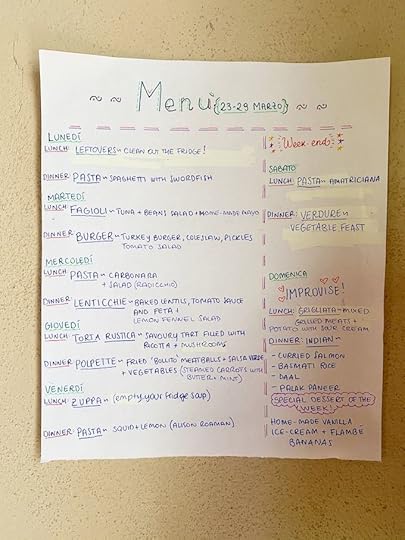 Menu {23-29 MARZO}
LUNEDÍ
LUNCH: LEFTOVERS~ CLEAN OUT THE FRIDGE!
DINNER: PASTA~ SPAGHETTI WITH SWORDFISH
MARTEDÍ
LUNCH: FAGIOLI~ TUNA + BEANS SALAD + HOME-MADE MAYO
DINNER: BURGER~ TURKEY BURGER, COLESLAW, PICKLES
TOMATO SALAD
MERCOLEDÍ
LUNCH: PASTA~ CARBONARA
+ SALAD (RADICCHIO)
DINNER: LENTICCHIE~ BAKED LENTILS, TOMATO SAUCE
AND FETA +
LEMON FENNEL SALAD
GIOVEDÍ
LUNCH: TORTA RUSTICA~ SAVOURY TART FILLED WITH
RICOTTA + MUSHROOMS
DINNER: POLPETTE~ FRIED 'BOLLITO' MEATBALLS + SALSA VERDE
+ VEGETABLES (STEAMED CARROTS WITH
BUTTER + MINT)
VENERDÍ
LUNCH: ZUPPA~ (empty your fridge soup)
DINNER: PASTA~ SQUID + LEMON (ALISON ROAMAN)
Week-end
SABATO
LUNCH: PASTA~ AMATRICIANA
DINNER: VERDURE~
VEGETABLE FEAST
DOMENICA
IMPROVISE!
LUNCH: GRIGLIATA~ MIXED
GRILLED MEATS +
POTATO WITH SOUR CREAM
DINNER: INDIAN~
- CURRIED SALMON
- BASMATI RICE
- DAAL
- PALAK PANEER
SPECIAL DESSERT OF THE
WEEK!
HOME-MADE VANILLA
ICE-CREAM + FLAMBE
BANANAS